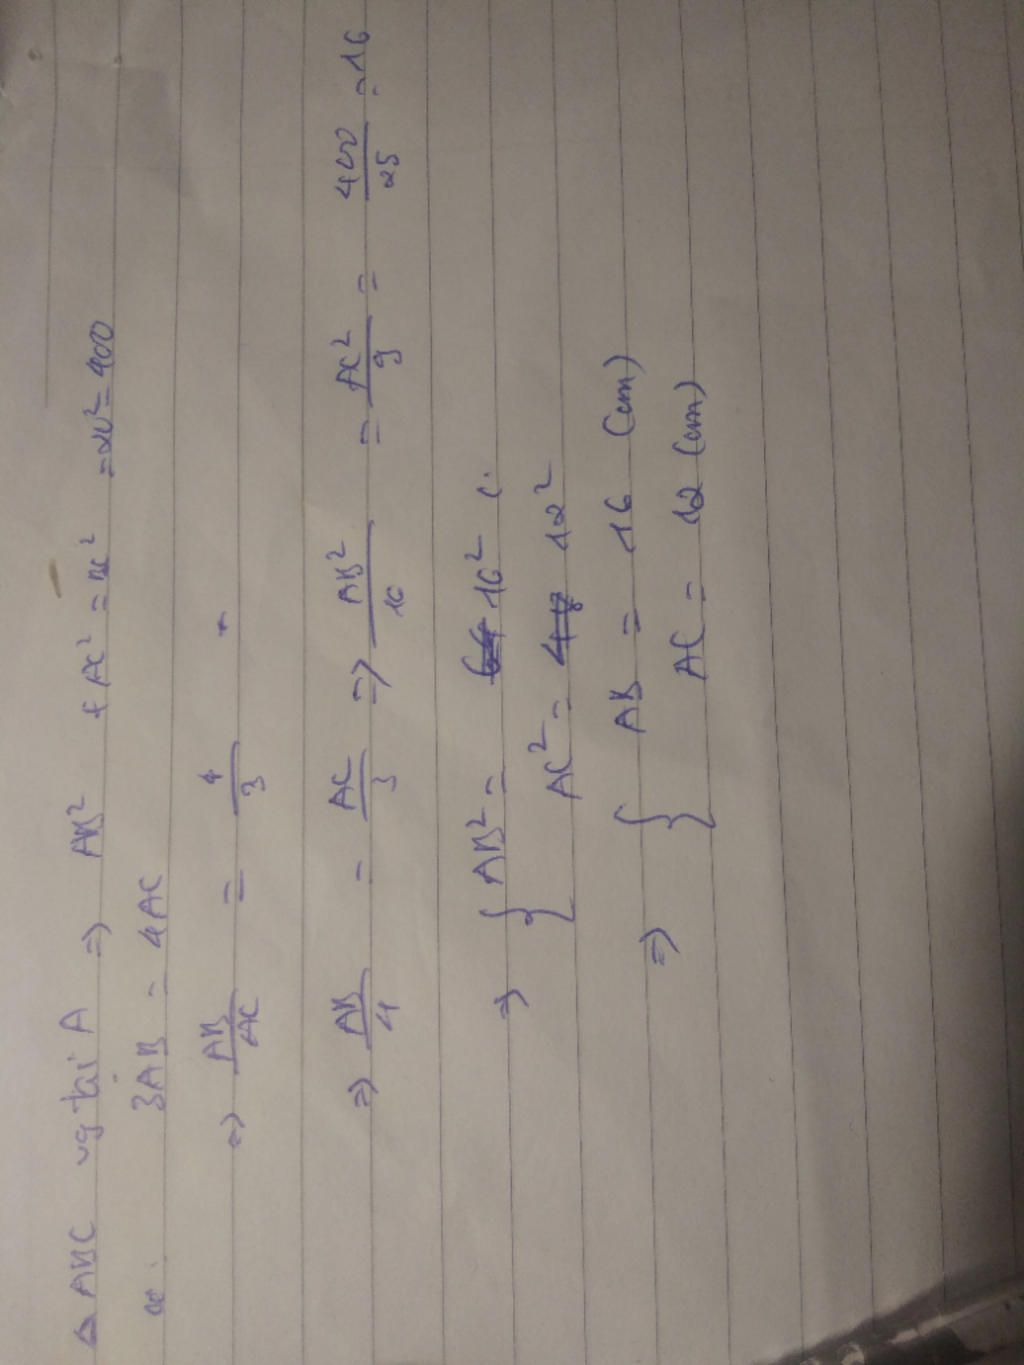 Δ ABC vg tại A => AB² + AC² = BC² = 20² = 400
3AB = 4AC
=> AB/AC = 4/3
=> AB/4 = AC/3 => AB²/16 = AC²/9 = 400/25 = 16
=> { AB² = 16²
AC² = 12²
=> { AB = 16 (cm)
AC = 12 (cm)